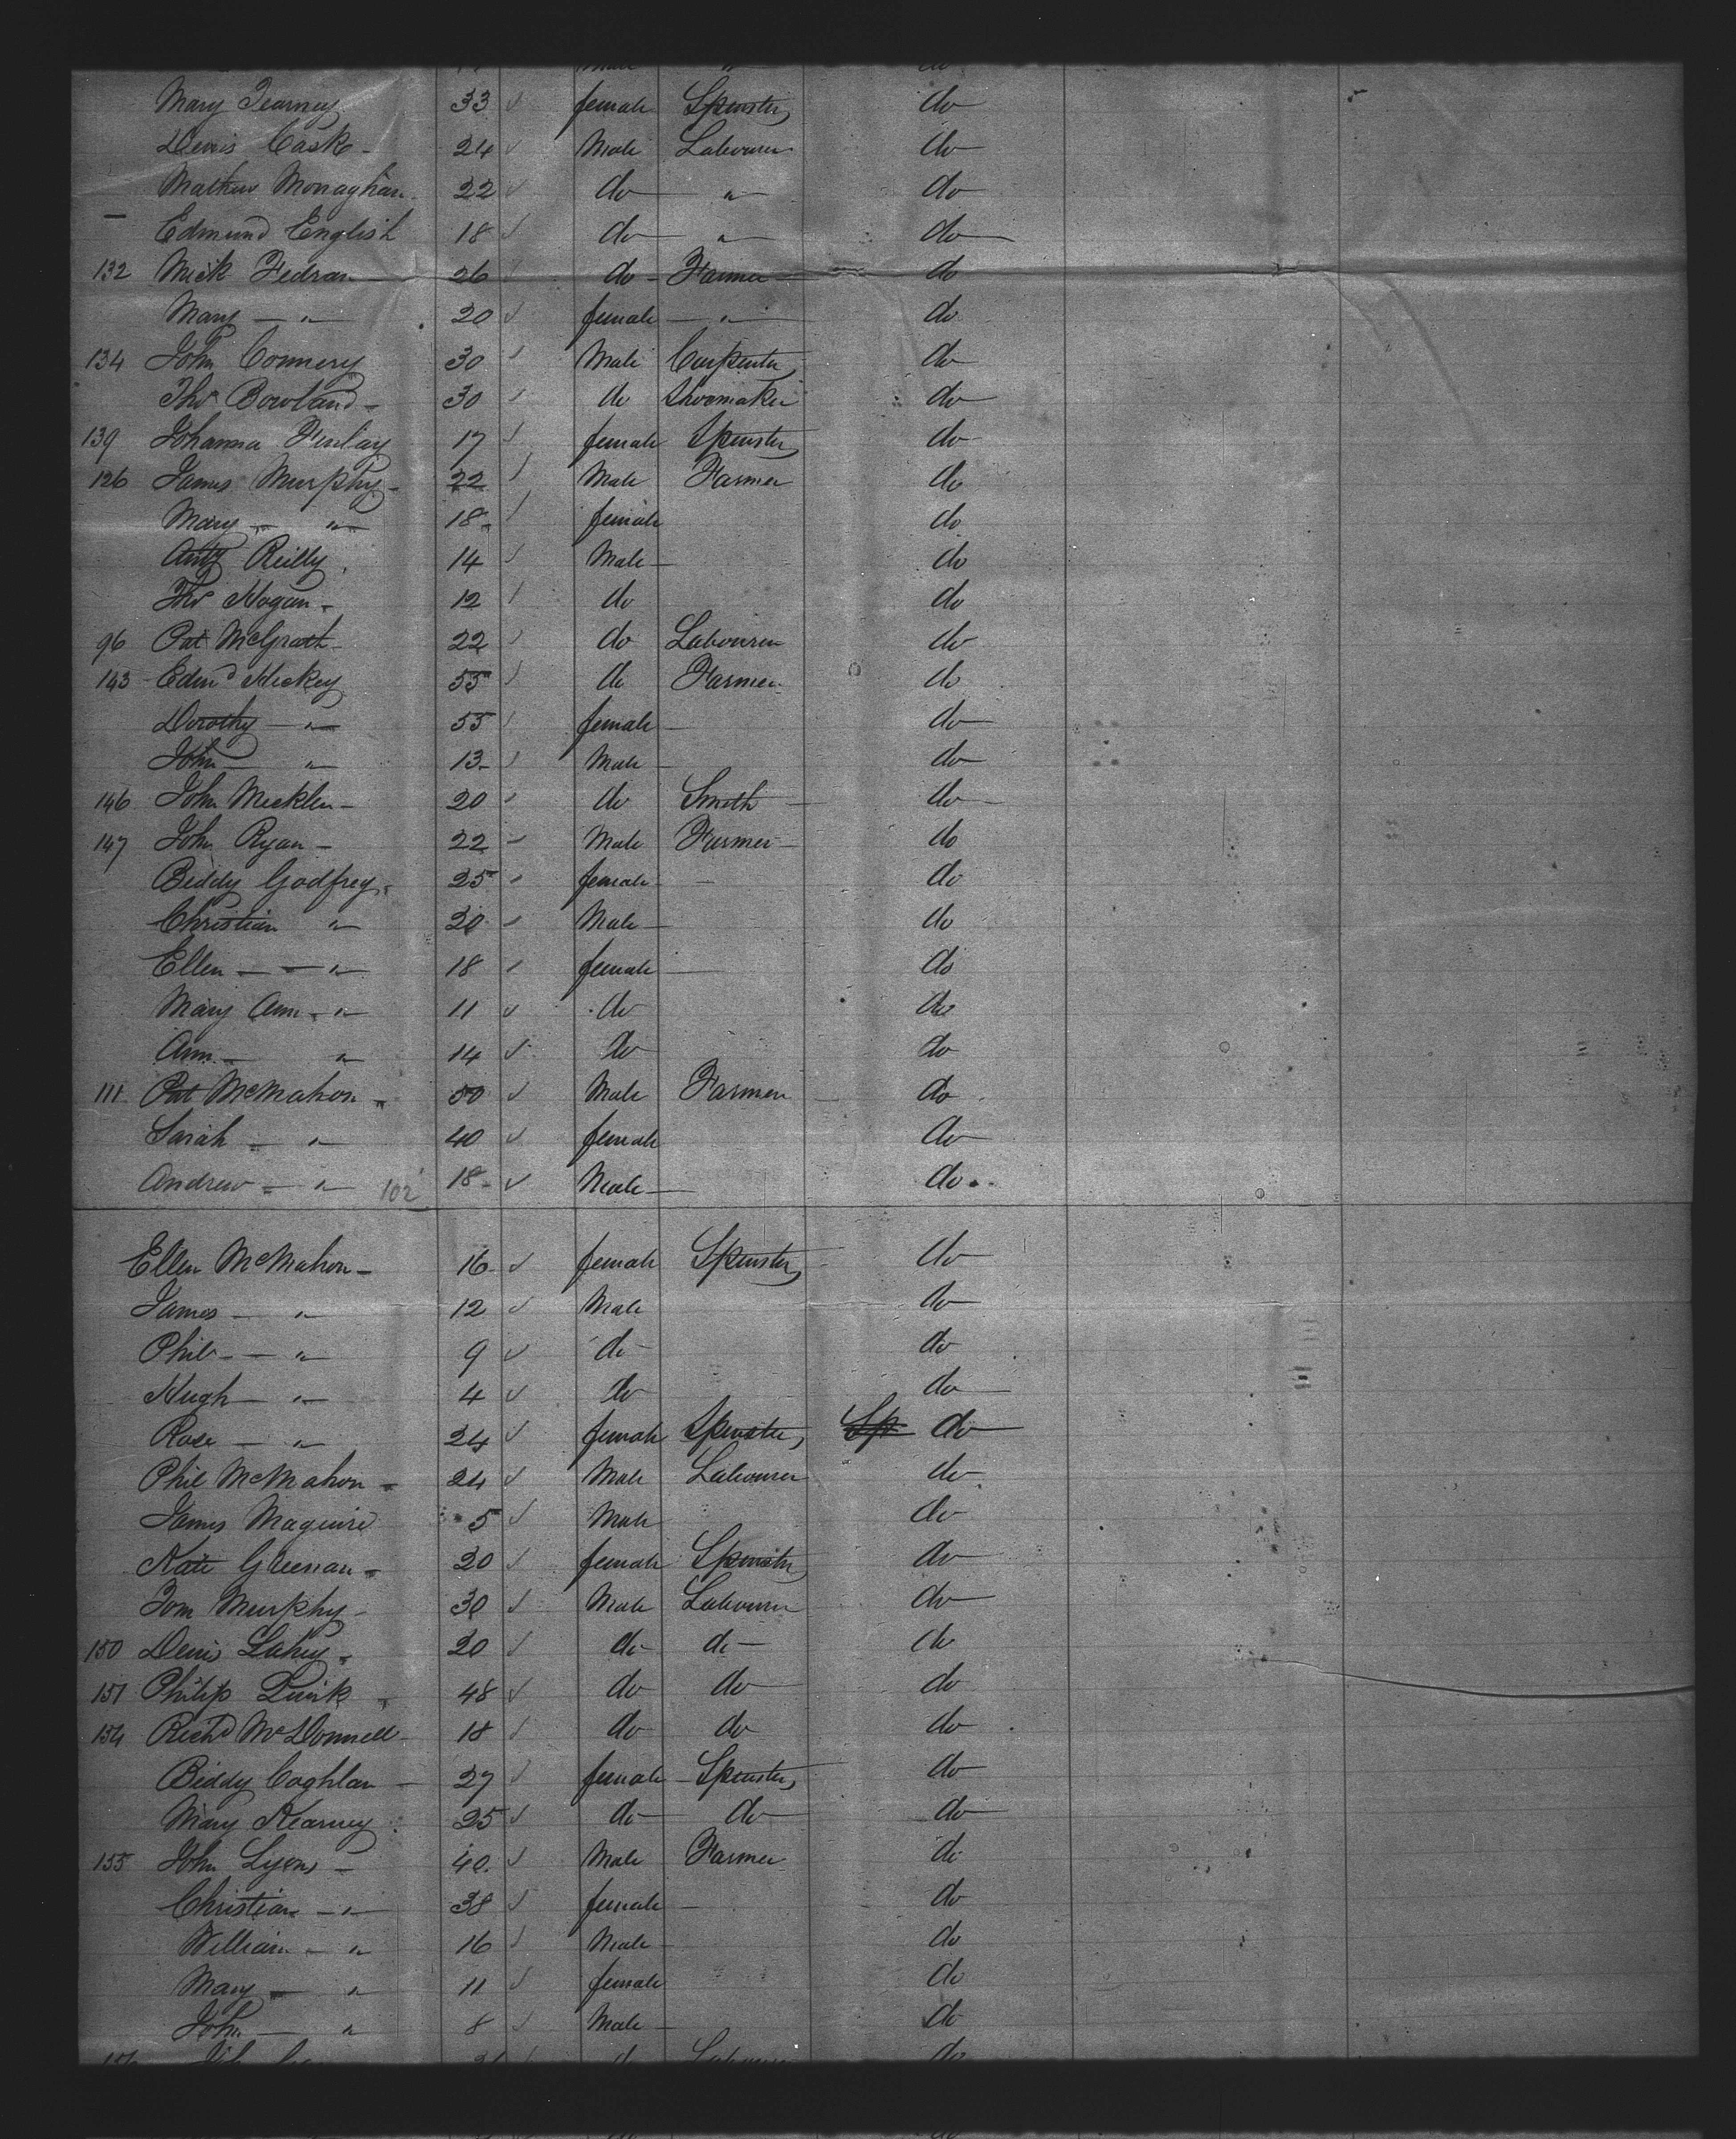 Mary Tearney 33 ✓ female Spinster do
Denis Cask 24 ✓ Male Labourer do
Mathew Monaghan 22 ✓ do " do
Edmund English 18 ✓ do " do
132 Mick Fedran 26 do Farmer do
Mary " 20 ✓ female " do
134 John Connery 30 Male Carpenter do
Thos Bowland 30 do Shoemaker do
139 Johanna Finlay 17 ✓ female Spinster do
126 James Murphy 22 Male Farmer do
Mary " 18 female do
Anty Reilly 14 ✓ Male do
Thos Hogan 12 do do
96 Pat McGrath 22 do Labourer do
143 Edmd Hickey 55 do Farmer do
Dorothy " 55 female do
John " 13 Male do
146 John Micklen 20 do Smith do
147 John Ryan 22 Male Farmer do
Biddy Godfrey 25 female do
Christian " 20 Male do
Ellen " 18 female do
Mary Ann " 11 ✓ do do
Ann " 14 ✓ do do
111 Pat McMahon 50 ✓ Male Farmer do
Sarah " 40 ✓ female do
Andrew " 102 18 ✓ Male do
Ellen McMahon 16 ✓ female Spinster do
James " 12 ✓ Male do
Phil " 9 ✓ do do
Hugh " 4 ✓ do do
Rose " 24 ✓ female Spinster Sp do
Phil McMahon 24 ✓ Male Labourer do
James Maguire 5 ✓ Male do
Kate Greenan 20 ✓ female Spinster do
Tom Murphy 30 ✓ Male Labourer do
150 Denis Lahey 20 ✓ do do do
151 Philip Quirk 48 ✓ do do do
154 Richd McDonnell 18 ✓ do do do
Biddy Coghlan 27 ✓ female Spinster do
Mary Kearney 25 ✓ do do do
155 John Lyons 40 ✓ Male Farmer do
Christian " 38 ✓ female do
William " 16 ✓ Male do
Mary " 11 ✓ female do
John " 8 ✓ Male do
do Labourer do